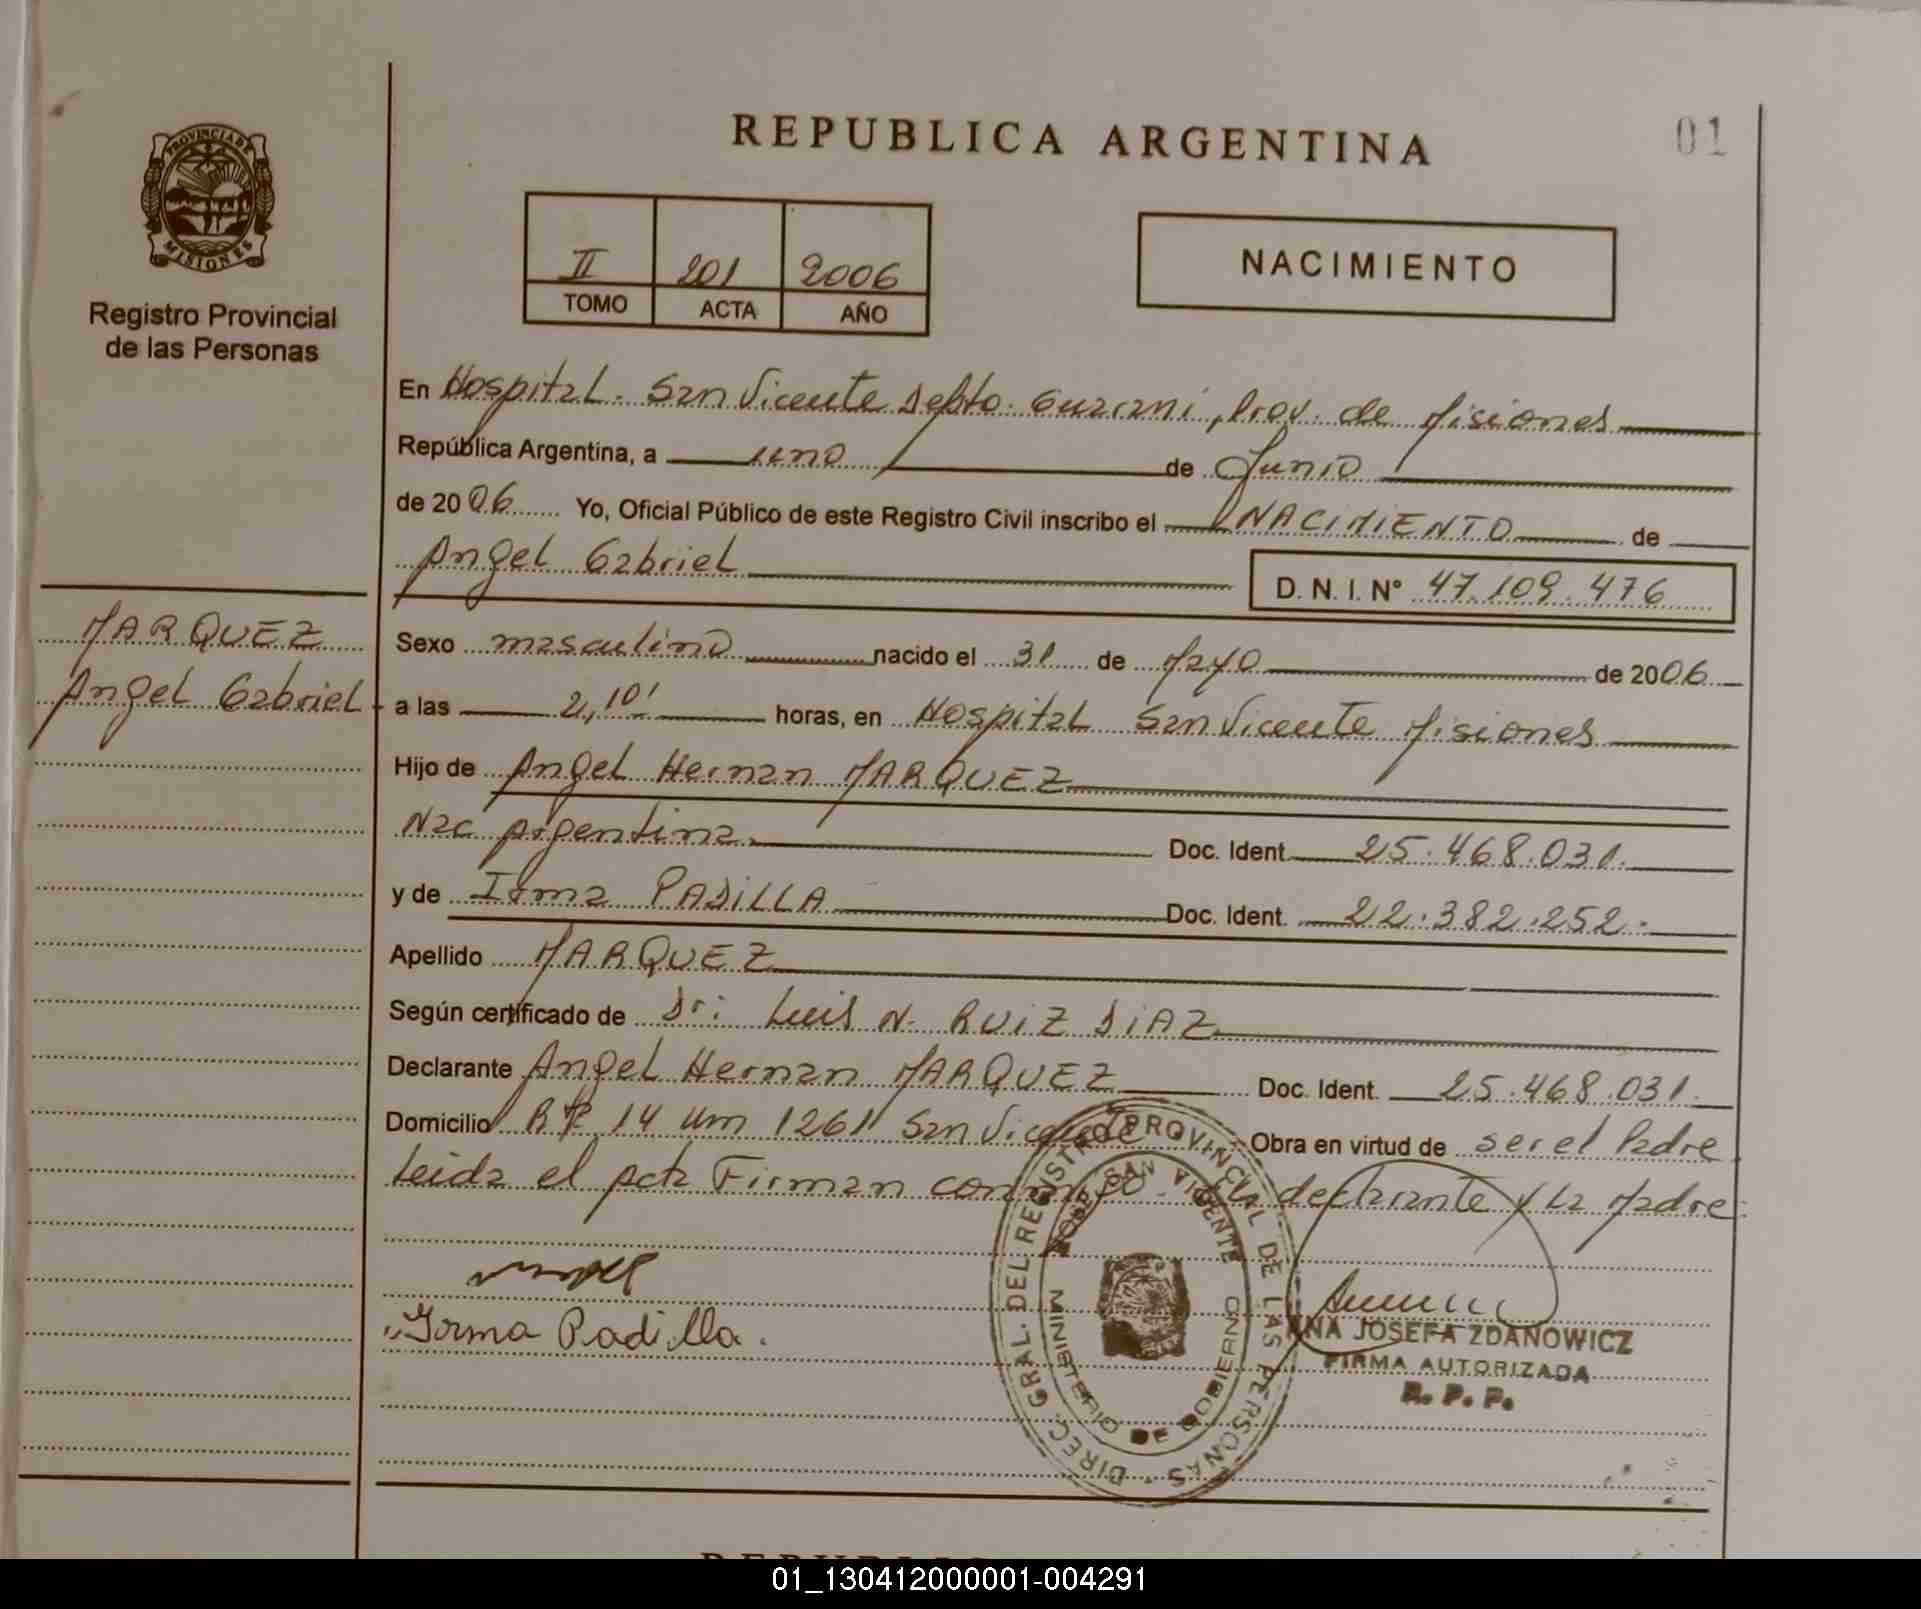 REPUBLICA ARGENTINA
01
PROVINCIA DE
MISIONES
Registro Provincial
de las Personas
II 201 2006
TOMO ACTA AÑO
NACIMIENTO
En Hospital. San Vicente Depto. Guarani, Prov. de Misiones
República Argentina, a uno de Junio
de 2006 Yo, Oficial Público de este Registro Civil inscribo el NACIMIENTO de
Angel Gabriel
D. N. I. Nº 47.109.476
MARQUEZ
Angel Gabriel
Sexo masculino nacido el 31 de Mayo de 2006
a las 2,10' horas, en Hospital San Vicente Misiones
Hijo de Angel Hernan MARQUEZ
Nac Argentina. Doc. Ident. 25.468.031.
y de Irma PADILLA Doc. Ident. 22.382.252.
Apellido MARQUEZ
Según certificado de Dr: Luis N. RUIZ DIAZ
Declarante Angel Hernan MARQUEZ Doc. Ident. 25.468.031.
Domicilio R 14 Km 1261 San Vicente Obra en virtud de ser el Padre
Leida el Acta Firman conmigo el declarante y la Madre
Irma Padilla.
DIREC. GRAL. DEL REGISTRO PROVINCIAL DE LAS PERSONAS
HOSP. SAN VICENTE
MINISTERIO DE GOBIERNO
ANA JOSEFA ZDANOWICZ
FIRMA AUTORIZADA
R. P. P.
01_130412000001-004291